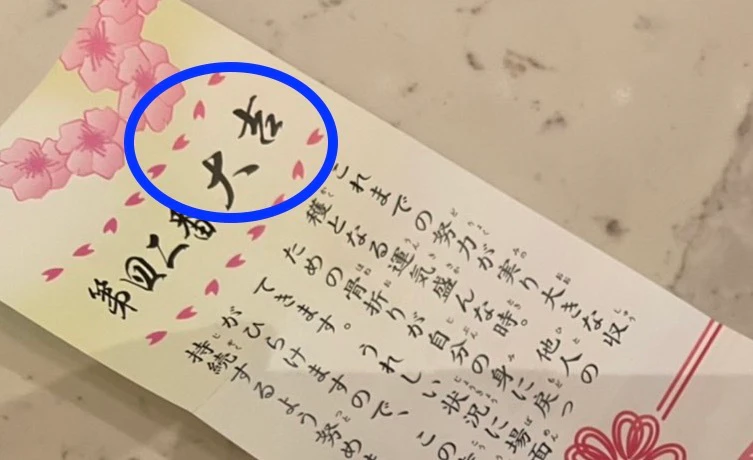 第四二番 大吉
これまでの努力が実り大きな収
穫となる運気盛んな時。他人の
ための骨折りが自分の身に戻っ
てきます。うれしい状況に場面
がひらけますので、この
持続するよう努め